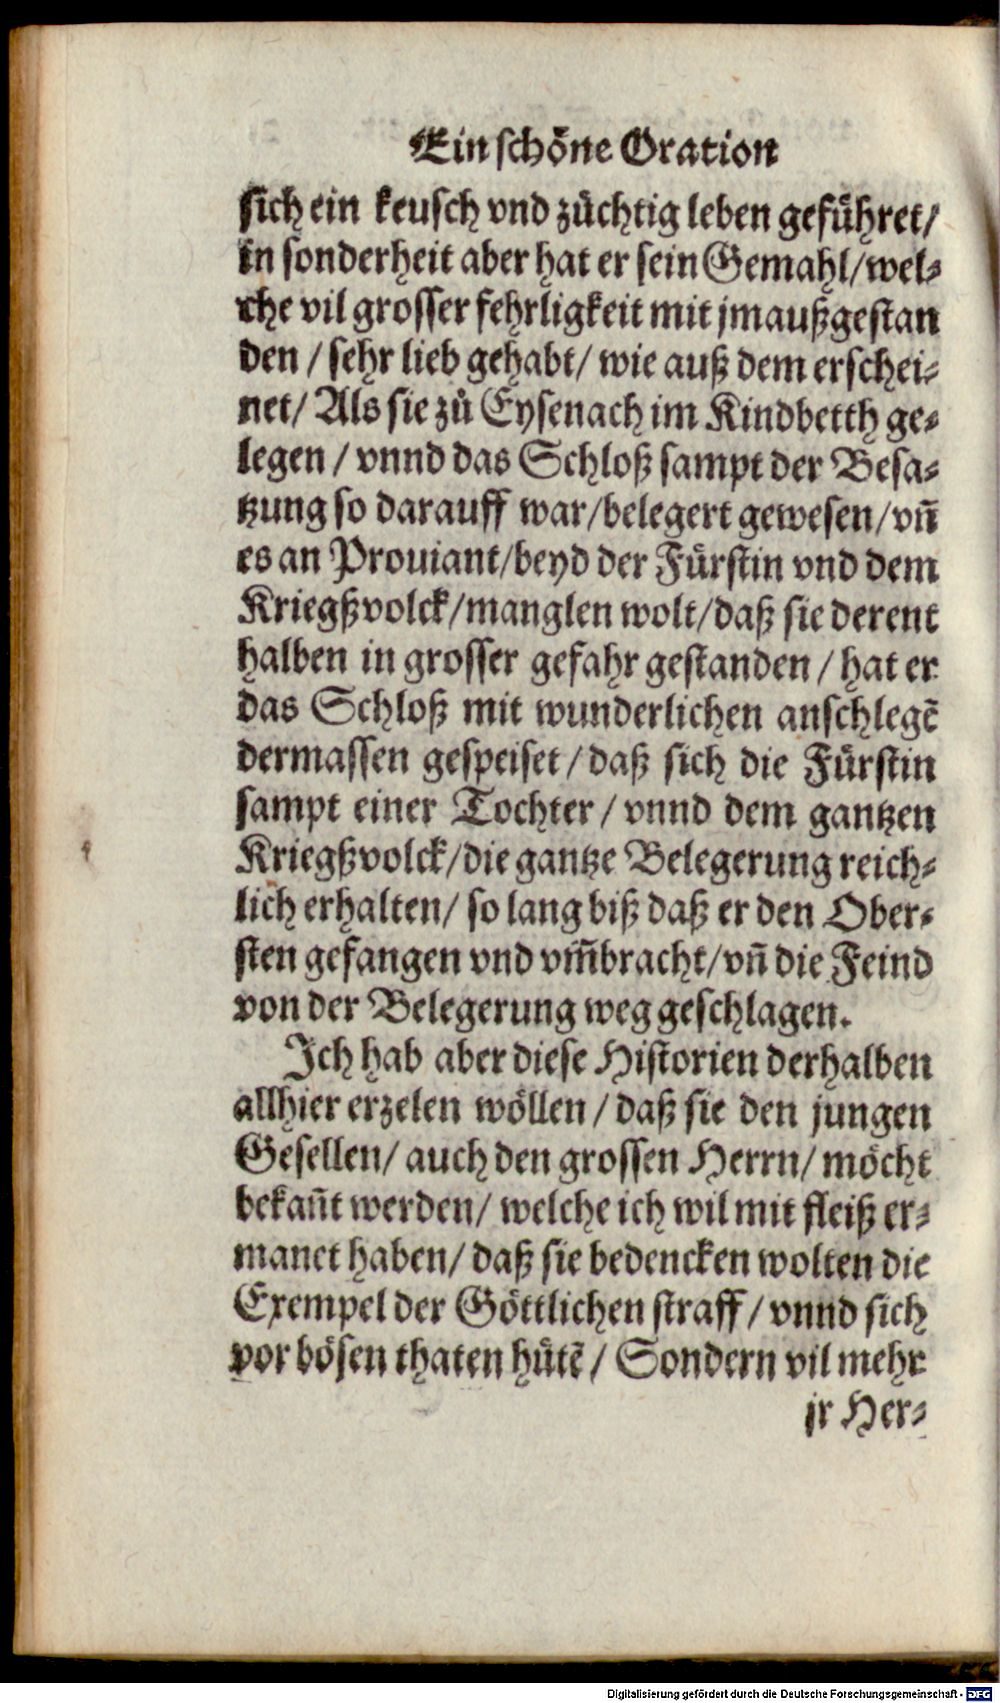 Ein schöne Oration
sich ein keusch vnd züchtig leben geführet/
in sonderheit aber hat er sein Gemahl/wel-
che vil grosser fehrligkeit mit jm außgestan
den / sehr lieb gehabt/ wie auß dem erschei-
net/ Als sie zů Eysenach im Kindbetth ge-
legen / vnnd das Schloß sampt der Besa-
tzung so darauff war/belegert gewesen/vñ
es an Prouiant/beyd der Fürstin vnd dem
Kriegßvolck/manglen wolt/daß sie derent
halben in grosser gefahr gestanden / hat er
das Schloß mit wunderlichen anschlegẽ
dermassen gespeiset / daß sich die Fürstin
sampt einer Tochter / vnnd dem gantzen
Kriegßvolck/die gantze Belegerung reich-
lich erhalten/ so lang biß daß er den Ober-
sten gefangen vnd vm̃bracht/vñ die Feind
von der Belegerung weg geschlagen.
Ich hab aber diese Historien derhalben
allhier erzelen wöllen / daß sie den jungen
Gesellen/ auch den grossen Herrn/ möcht
bekañt werden/ welche ich wil mit fleiß er-
manet haben/ daß sie bedencken wolten die
Exempel der Göttlichen straff / vnnd sich
vor bösen thaten hütẽ / Sondern vil mehr
jr Her-
Digitalisierung gefördert durch die Deutsche Forschungsgemeinschaft - DFG